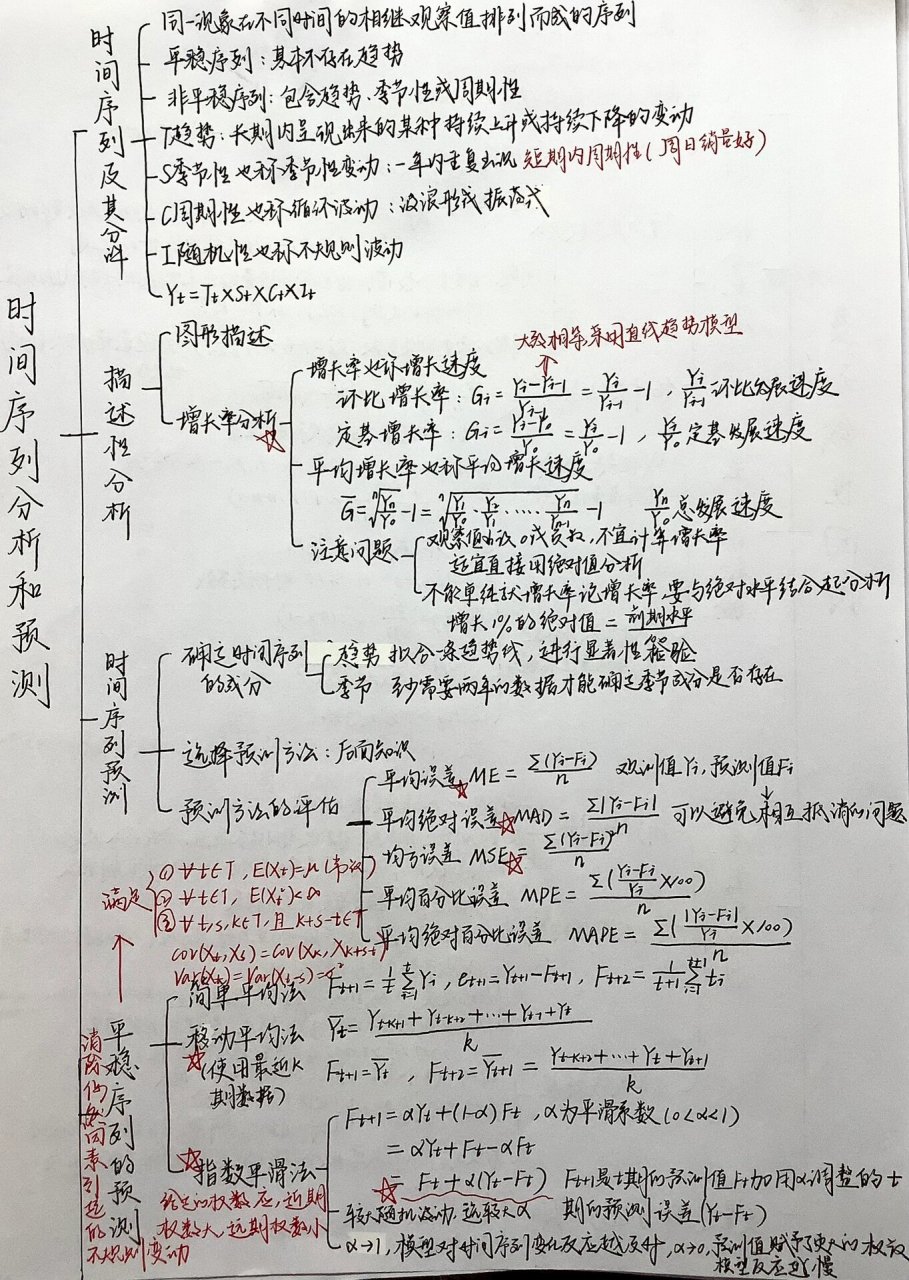 时间序列分析和预测
时间序列及其分解
同一现象在不同时间的相继观察值排列而成的序列
平稳序列：基本不存在趋势
非平稳序列：包含趋势、季节性或周期性
T趋势：长期内呈现出来的某种持续上升或持续下降的变动
S季节性也称季节性变动：一年内重复出现 短期内周期性(周日销量好)
C周期性也称循环波动：波浪形或振荡式
I随机性也称不规则波动
Yt=Tt×St×Ct×It
描述性分析
图形描述
大致相等,采用直线趋势模型
增长率分析
增长率也称增长速度
环比增长率：Gi=(Yi-Yi-1)/Yi-1=Yi/Yi-1 -1，Yi/Yi-1 环比发展速度
定基增长率：Gi=(Yi-Y0)/Y0=Yi/Y0 -1，Yi/Y0 定基发展速度
平均增长率也称平均增长速度
G̅=ⁿ√(Yn/Y0) -1=ⁿ√(Y1/Y0·Y2/Y1·……·Yn/Yn-1) -1 Yn/Y0 总发展速度
注意问题
观察值出现0或负数,不宜计算增长率
适宜直接用绝对值分析
不能单纯就增长率论增长率,要与绝对水平结合起来分析
增长1%的绝对值=前期水平
时间序列预测
确定时间序列的成分
趋势 拟合一条趋势线，进行显著性检验
季节 至少需要两年的数据才能确定季节成分是否存在
选择预测方法：后面知识
预测方法的评估
平均误差 ME=Σ(Yi-Fi)/n 观测值Yi,预测值Fi
平均绝对误差 MAD=Σ|Yi-Fi|/n 可以避免相互抵消的问题
均方误差 MSE=Σ(Yi-Fi)²/n
平均百分比误差 MPE=Σ((Yi-Fi)/Yi×100)/n
平均绝对百分比误差 MAPE=Σ(|Yi-Fi|/Yi×100)/n
满足
①∀t∈T,E(Xt)=μ(常数)
②∀t∈T,E(Xt²)<∞
③∀t,s,k∈T,且k+s-t∈T
cov(Xt,Xs)=Cov(Xk,Xk+s-t)
Var(Xt)=Var(Xt-s)=σ²
平稳序列的预测
消除偶然因素引起的不规则变动
简单平均法 Ft+1=1/t Σ(i=1,t) Yi，et+1=Yt+1-Ft+1，Ft+2=1/(t+1) Σ(i=1,t+1) ti
移动平均法 Y̅t=(Yt-k+1+Yt-k+2+…+Yt-1+Yt)/k
(使用最近k期数据)
Ft+1=Y̅t，Ft+2=Y̅t+1=(Yt-k+2+…+Yt+Yt+1)/k
指数平滑法
Ft+1=αYt+(1-α)Ft，α为平滑系数(0<α<1)
=αYt+Ft-αFt
=Ft+α(Yt-Ft) Ft+1是t期的预测值Ft加用α调整的t期的预测误差(Yt-Ft)
较大随机波动,选较大α
α→1,模型对时间序列变化反应越及时，α→0,预测值赋予更大的权数
模型反应越慢
给定的权数应,近期权数大,远期权数小